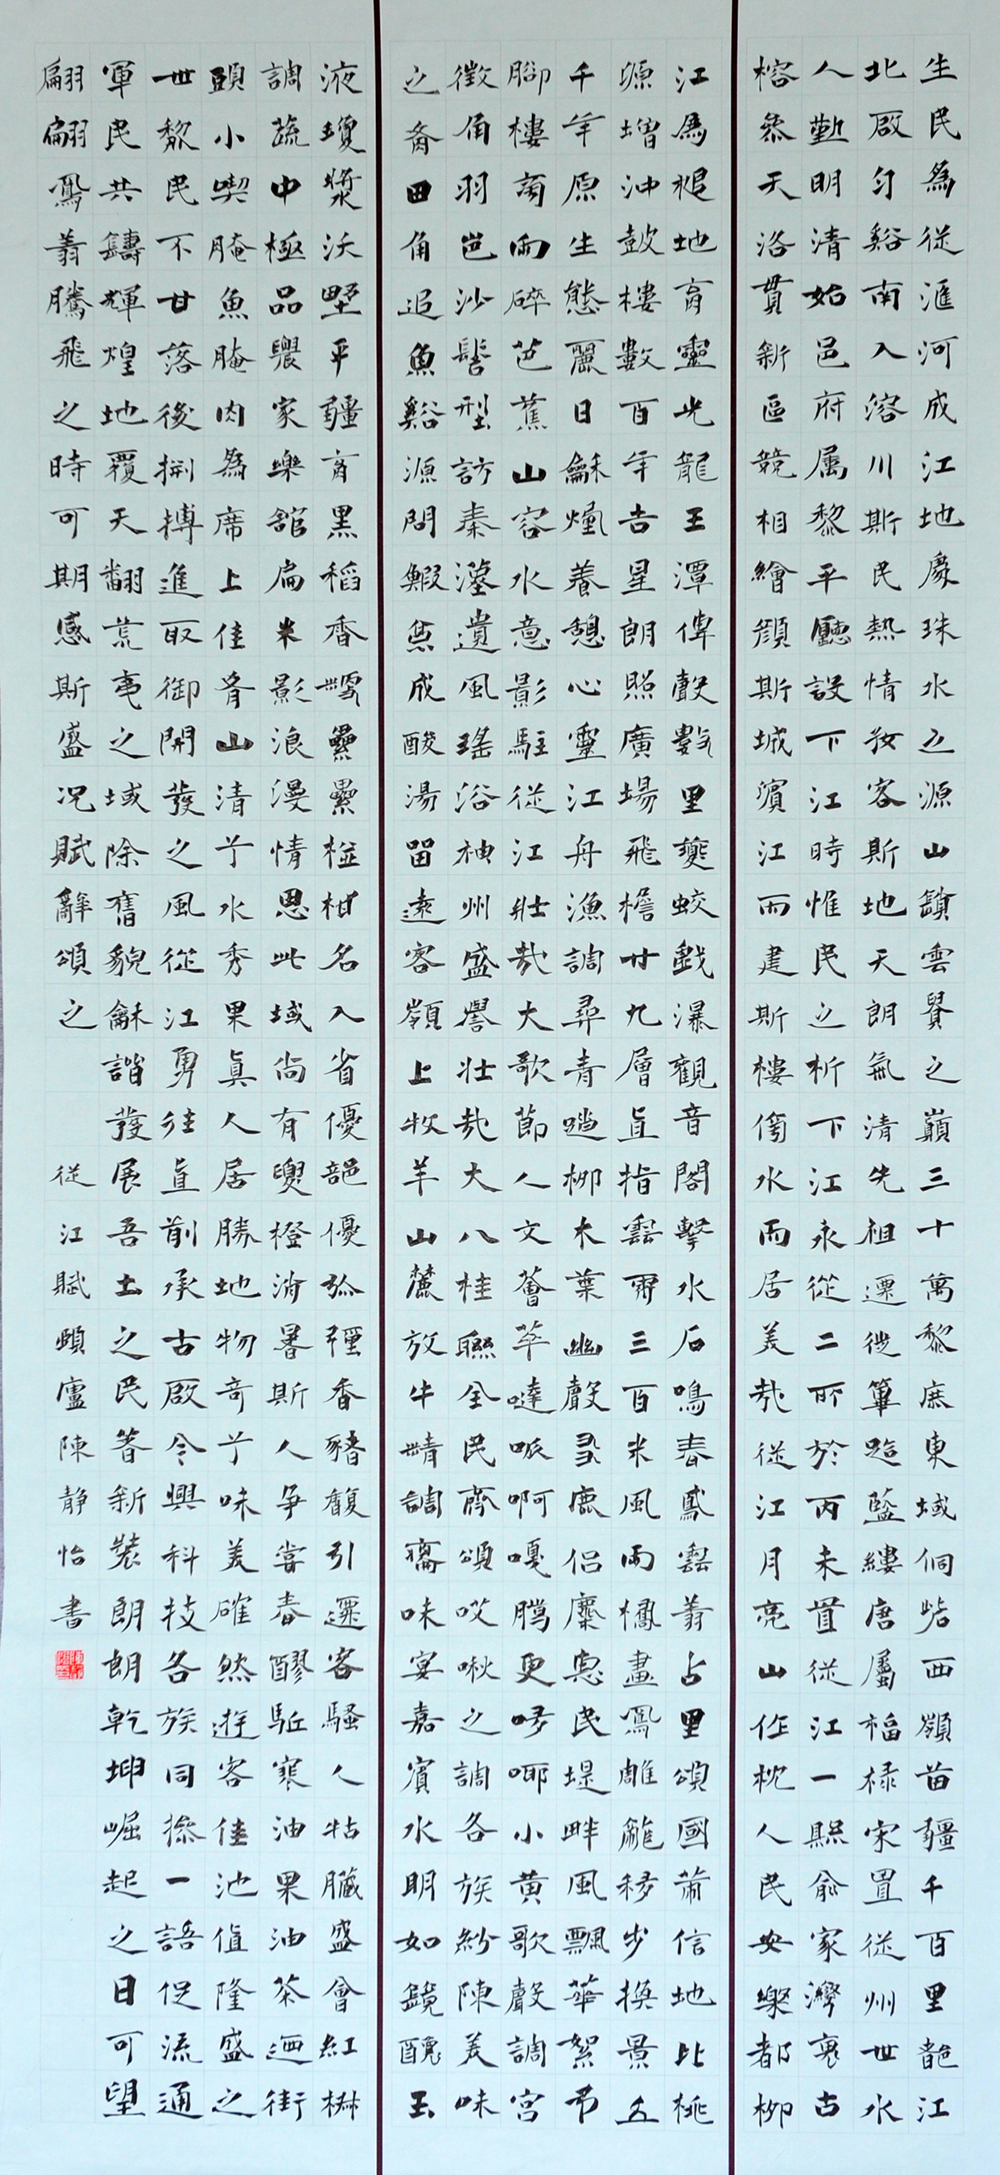 生民為從滙河成江地處珠水之源山鎖雲貴之巔三十萬黎庶東域侗岩西嶺苗疆千百里都江
北啟匀谿南入溶川斯民熱情好客斯地天朗氣清先祖遷徙篳路藍縷唐屬福祿宋置從州世水
人勤明清始邑府属黎平廳設下江時惟民之析下江永從二所於丙未置從江一熙俞家灣裏古
榕叅天洛貫新區競相繪顔斯城濱江而建斯樓傍水而居美哉從江月亮山作枕人民安樂都柳
江為褪地育靈光龍王潭傳聲數里夔蛟戲瀑觀音閣擊水石鳴春鳳雲翥占里頌國肅信地比桃
源增沖鼓樓數百年吉星朗照廣場飛檐廿九層直指雲霄三百米風雨橋畫鳳雕龍移步換景五
千年原生態麗日龢煴養憩心靈江舟漁調尋青邋柳木葉幽聲鹿侣麋寬民堤畔風飄華絮帀
腳樓茵雨碎芭蕉山容水意影駐從江壯哉大歌節人文薈萃噠哌啊嘎哎騰更哕哪小黄歌聲調宮
徵角羽岜沙髻型訪秦漢遺風瑤浴神州盛譽壮哉大八桂聯全民齊頌哎啾之調各族紛陳美味
之肴田角追魚谿源問蝦烹成酸湯留遠客嶺上牧羊山麓放牛精調齋味宴嘉賓水明如鏡醜玉
液瓊漿沃野平疆育黑稻香雪纍纍椪柑名入省優部優孤疆香豬馥引遷客騷人牯臟盛會紅椒
調蔬中極品釁家樂舘扁米影浪漫情思此域尚有臾橙消暑斯人爭嘗春醪駈寒油果油茶迴街
頭小喫腌魚腌肉為席上佳肴山清兮水秀果真人居勝地物奇兮味美確然遊客佳池值隆盛之
世黎民不甘落後捌搏進取御開發之風從江勇往直前承古啟今興科技各族同操一語促流通
軍民共鑄輝煌地覆天翻荒蕪之域除舊貌龢諧發展吾土之民著新裝朗朗乾坤崛起之日可望
翩翩鳳翥騰飛之時可期感斯盛況賦辭頌之
從江賦 頤廬陳静怡書